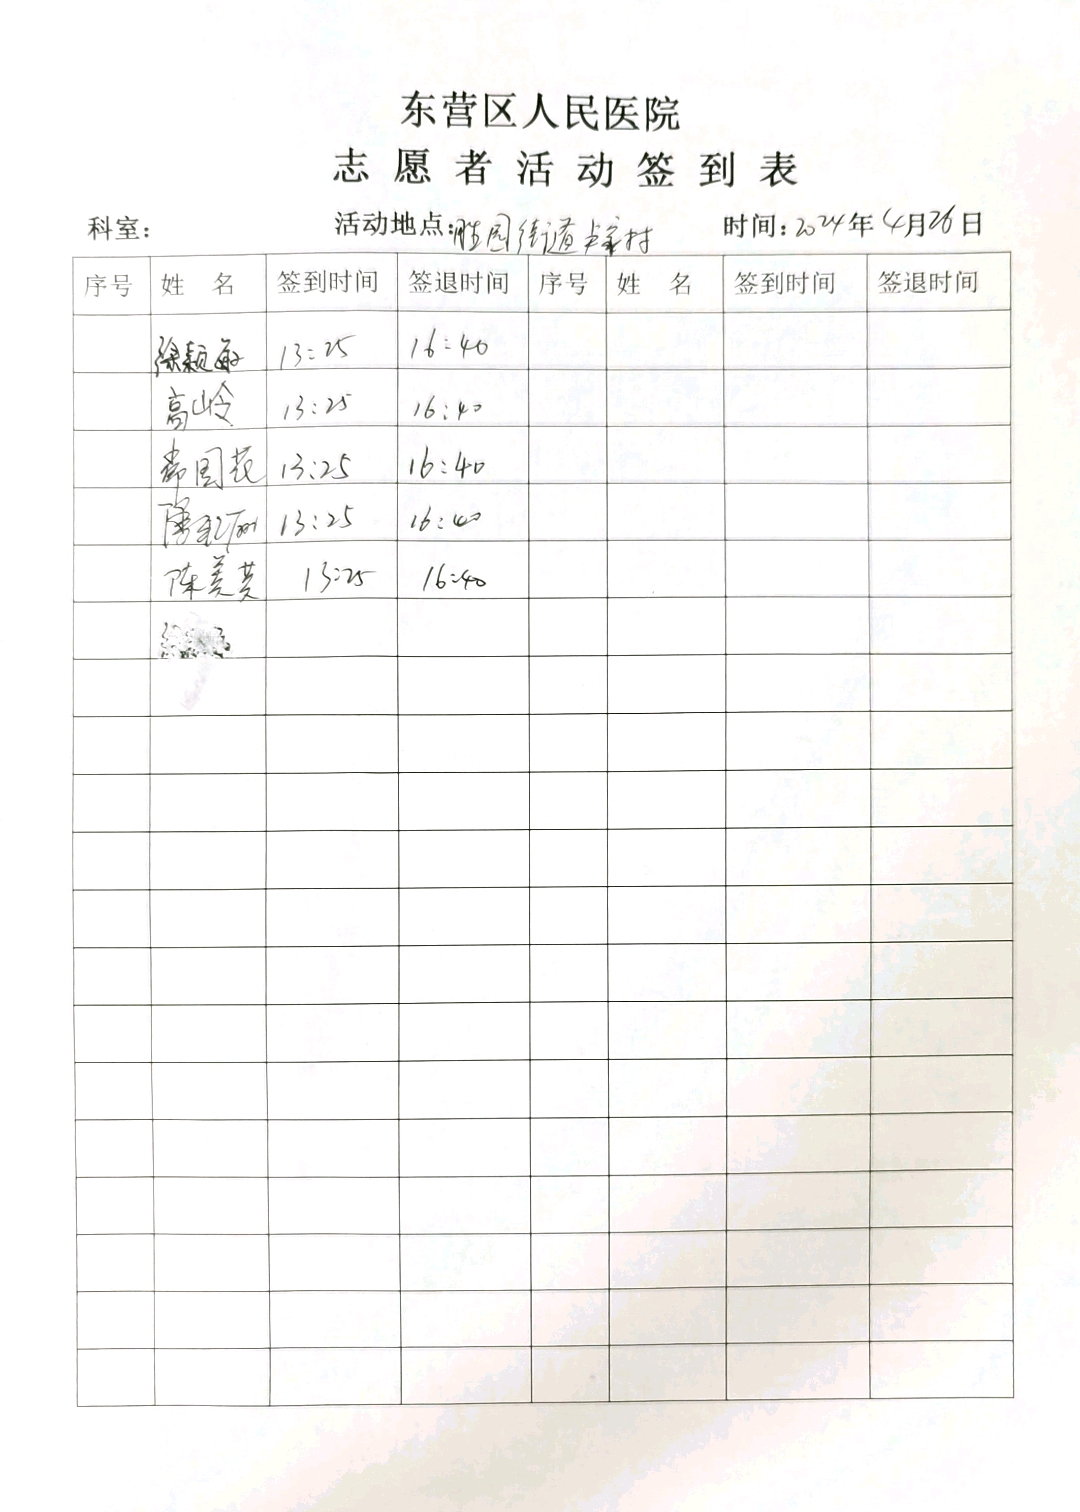 东营区人民医院
志愿者活动签到表
科室: 活动地点:胜园街道 村 时间:2024年4月26日
序号 姓名 签到时间 签退时间 序号 姓名 签到时间 签退时间
徐颖敏 13:25 16:40
高岭 13:25 16:40
国花 13:25 16:40
13:25 16:40
陈美芸 13:25 16:40